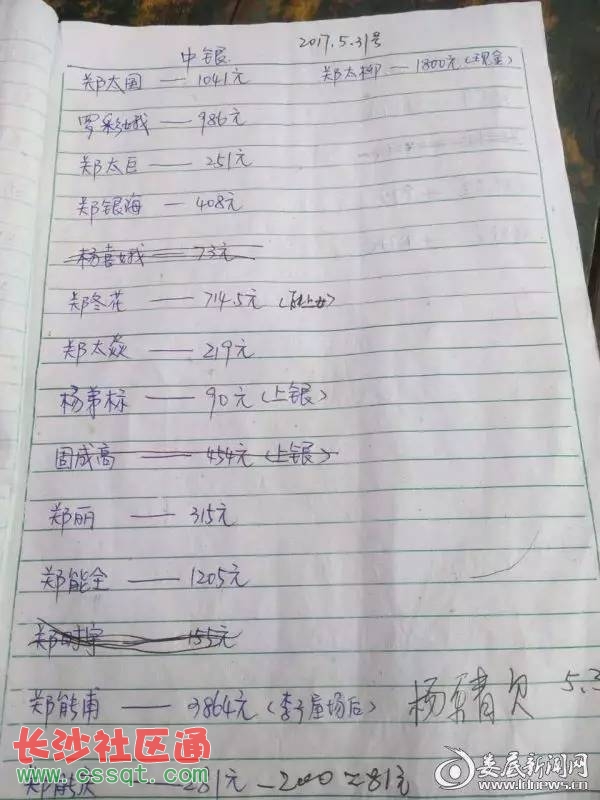 中银 2017.5.31号
郑太国 — 1041元 郑太柳 — 1800元(现金)
罗彩娥 — 986元
郑太巨 — 251元
郑银海 — 408元
杨喜娥 — 73元
郑冬花 — 714.5元
郑太焱 — 219元
杨弟标 — 90元(上银)
固成高 — 454元(上银)
郑丽 — 315元
郑能全 — 1205元
155元
郑能甫 — 3864元(李子屋场后) 5.3
郑能庆 281元 - 200 = 81元
长沙社区通
www.cssqt.com
娄底新闻网
www.ldnews.cn